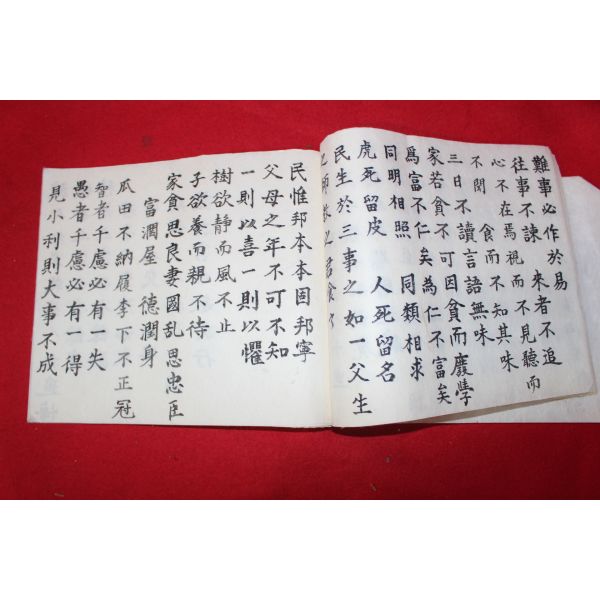 難事必作於易
往事不諫 來者不追
心不在焉視而不見聽而
不聞 食而不知其味
三日不讀言語無味
家若貧不可因貧而廢學
爲富不仁矣為仁不富矣
同明相照 同類相求
虎死留皮 人死留名
民生於三事之如一父生
之師教之君食之
民惟邦本本固邦寧
父母之年不可不知
一則以喜一則以懼
樹欲静而風不止
子欲養而親不待
家貪思良妻國乱思忠臣
富潤屋 德潤身
瓜田不納履李下不正冠
智者千慮必有一失
愚者千慮必有一得
見小利則大事不成